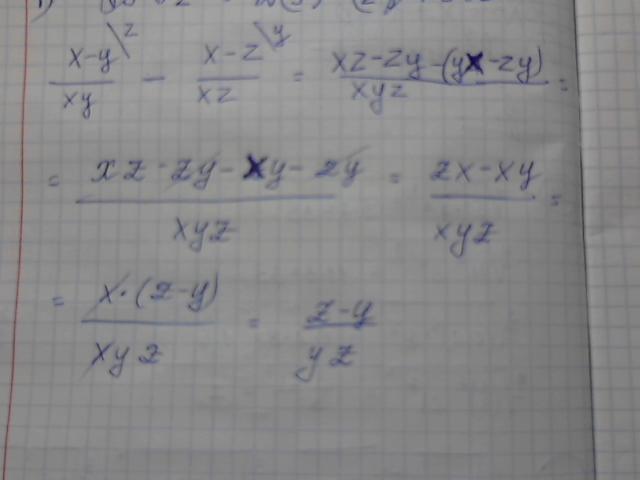 x-y \z / xy - x-z \y / xz = xz-zy-(yx-zy) / xyz =
= xz-zy-xy-zy / xyz = zx-xy / xyz =
= x·(z-y) / xyz = z-y / yz